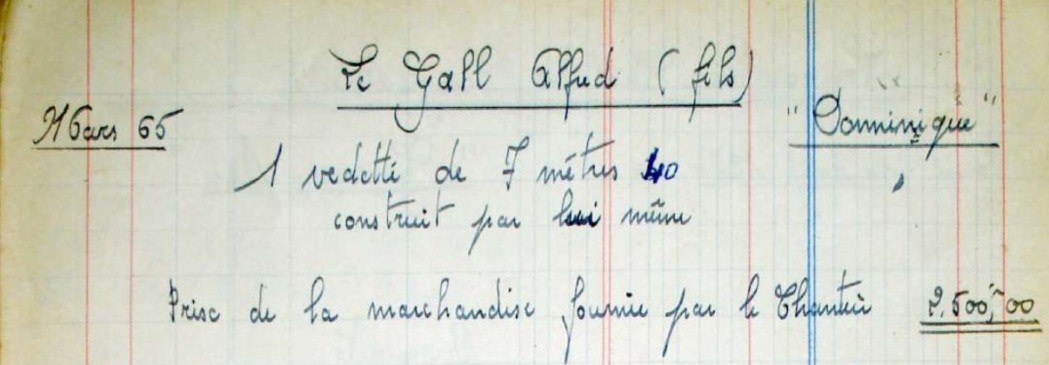 Le Gall Alfred (fils)
Mars 65
"Dominique"
1 vedette de 7 mètres 40
construit par lui même
Prise de la marchandise fournie par le Chantier 2.500,00